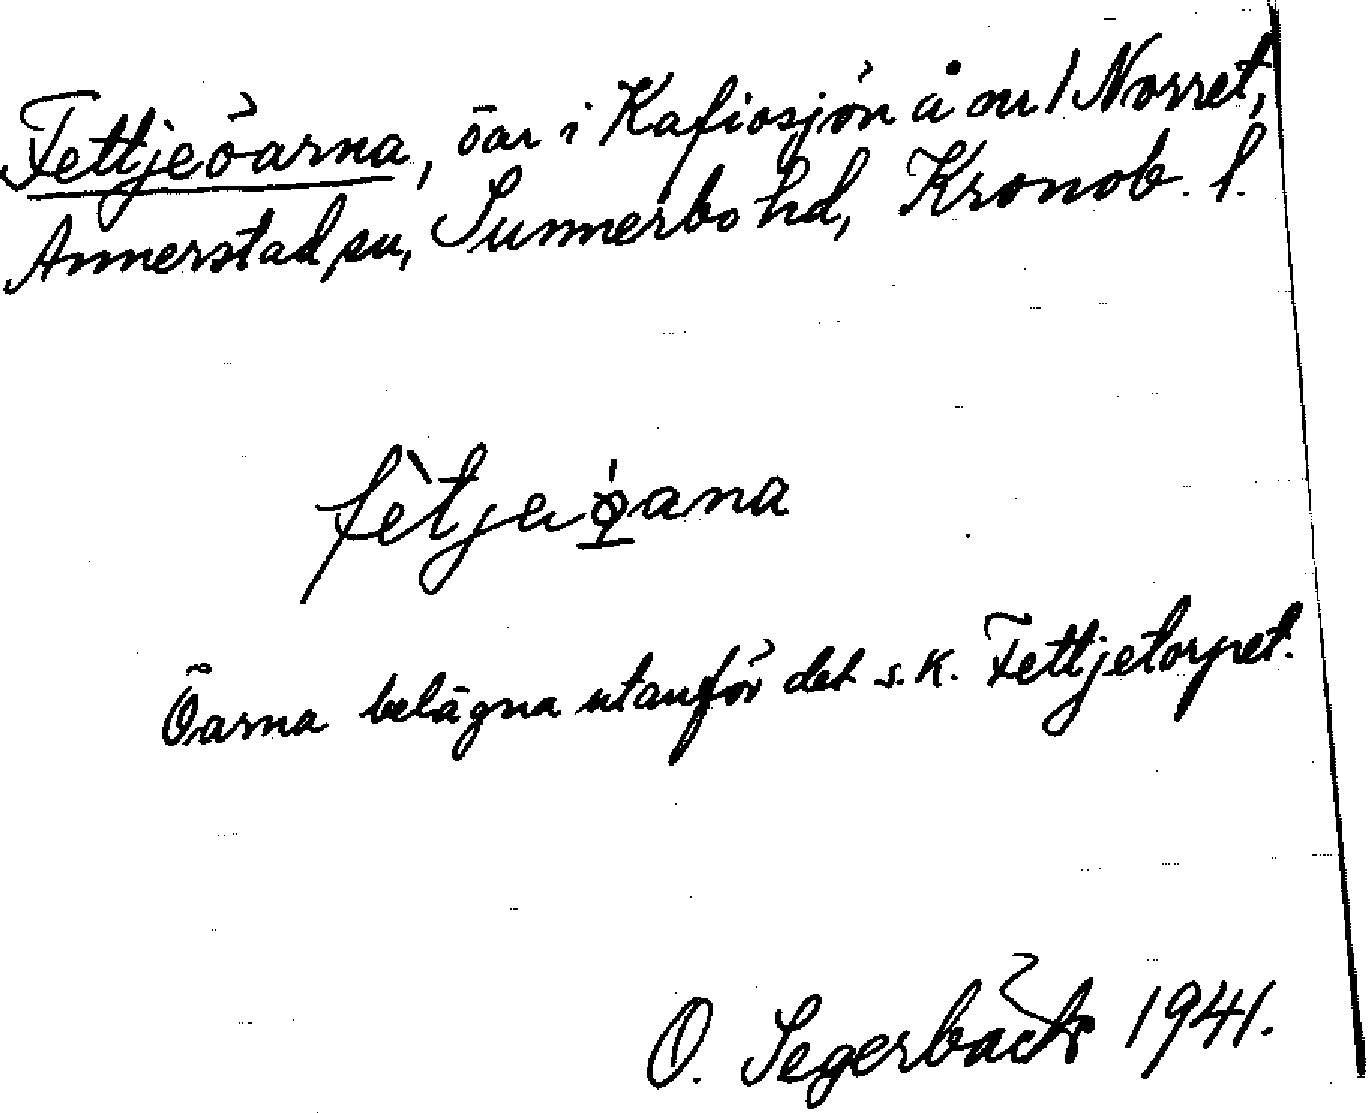 Fettjeöarna, öar i Kafiosjön å nr 1 Norret,
Annerstad sn, Sunnerbo hd, Kronob. l.
fètjeǿ̱ana
Öarna belägna utanför det s.k. Fettjetorpet.
O. Segerbäck 1941.